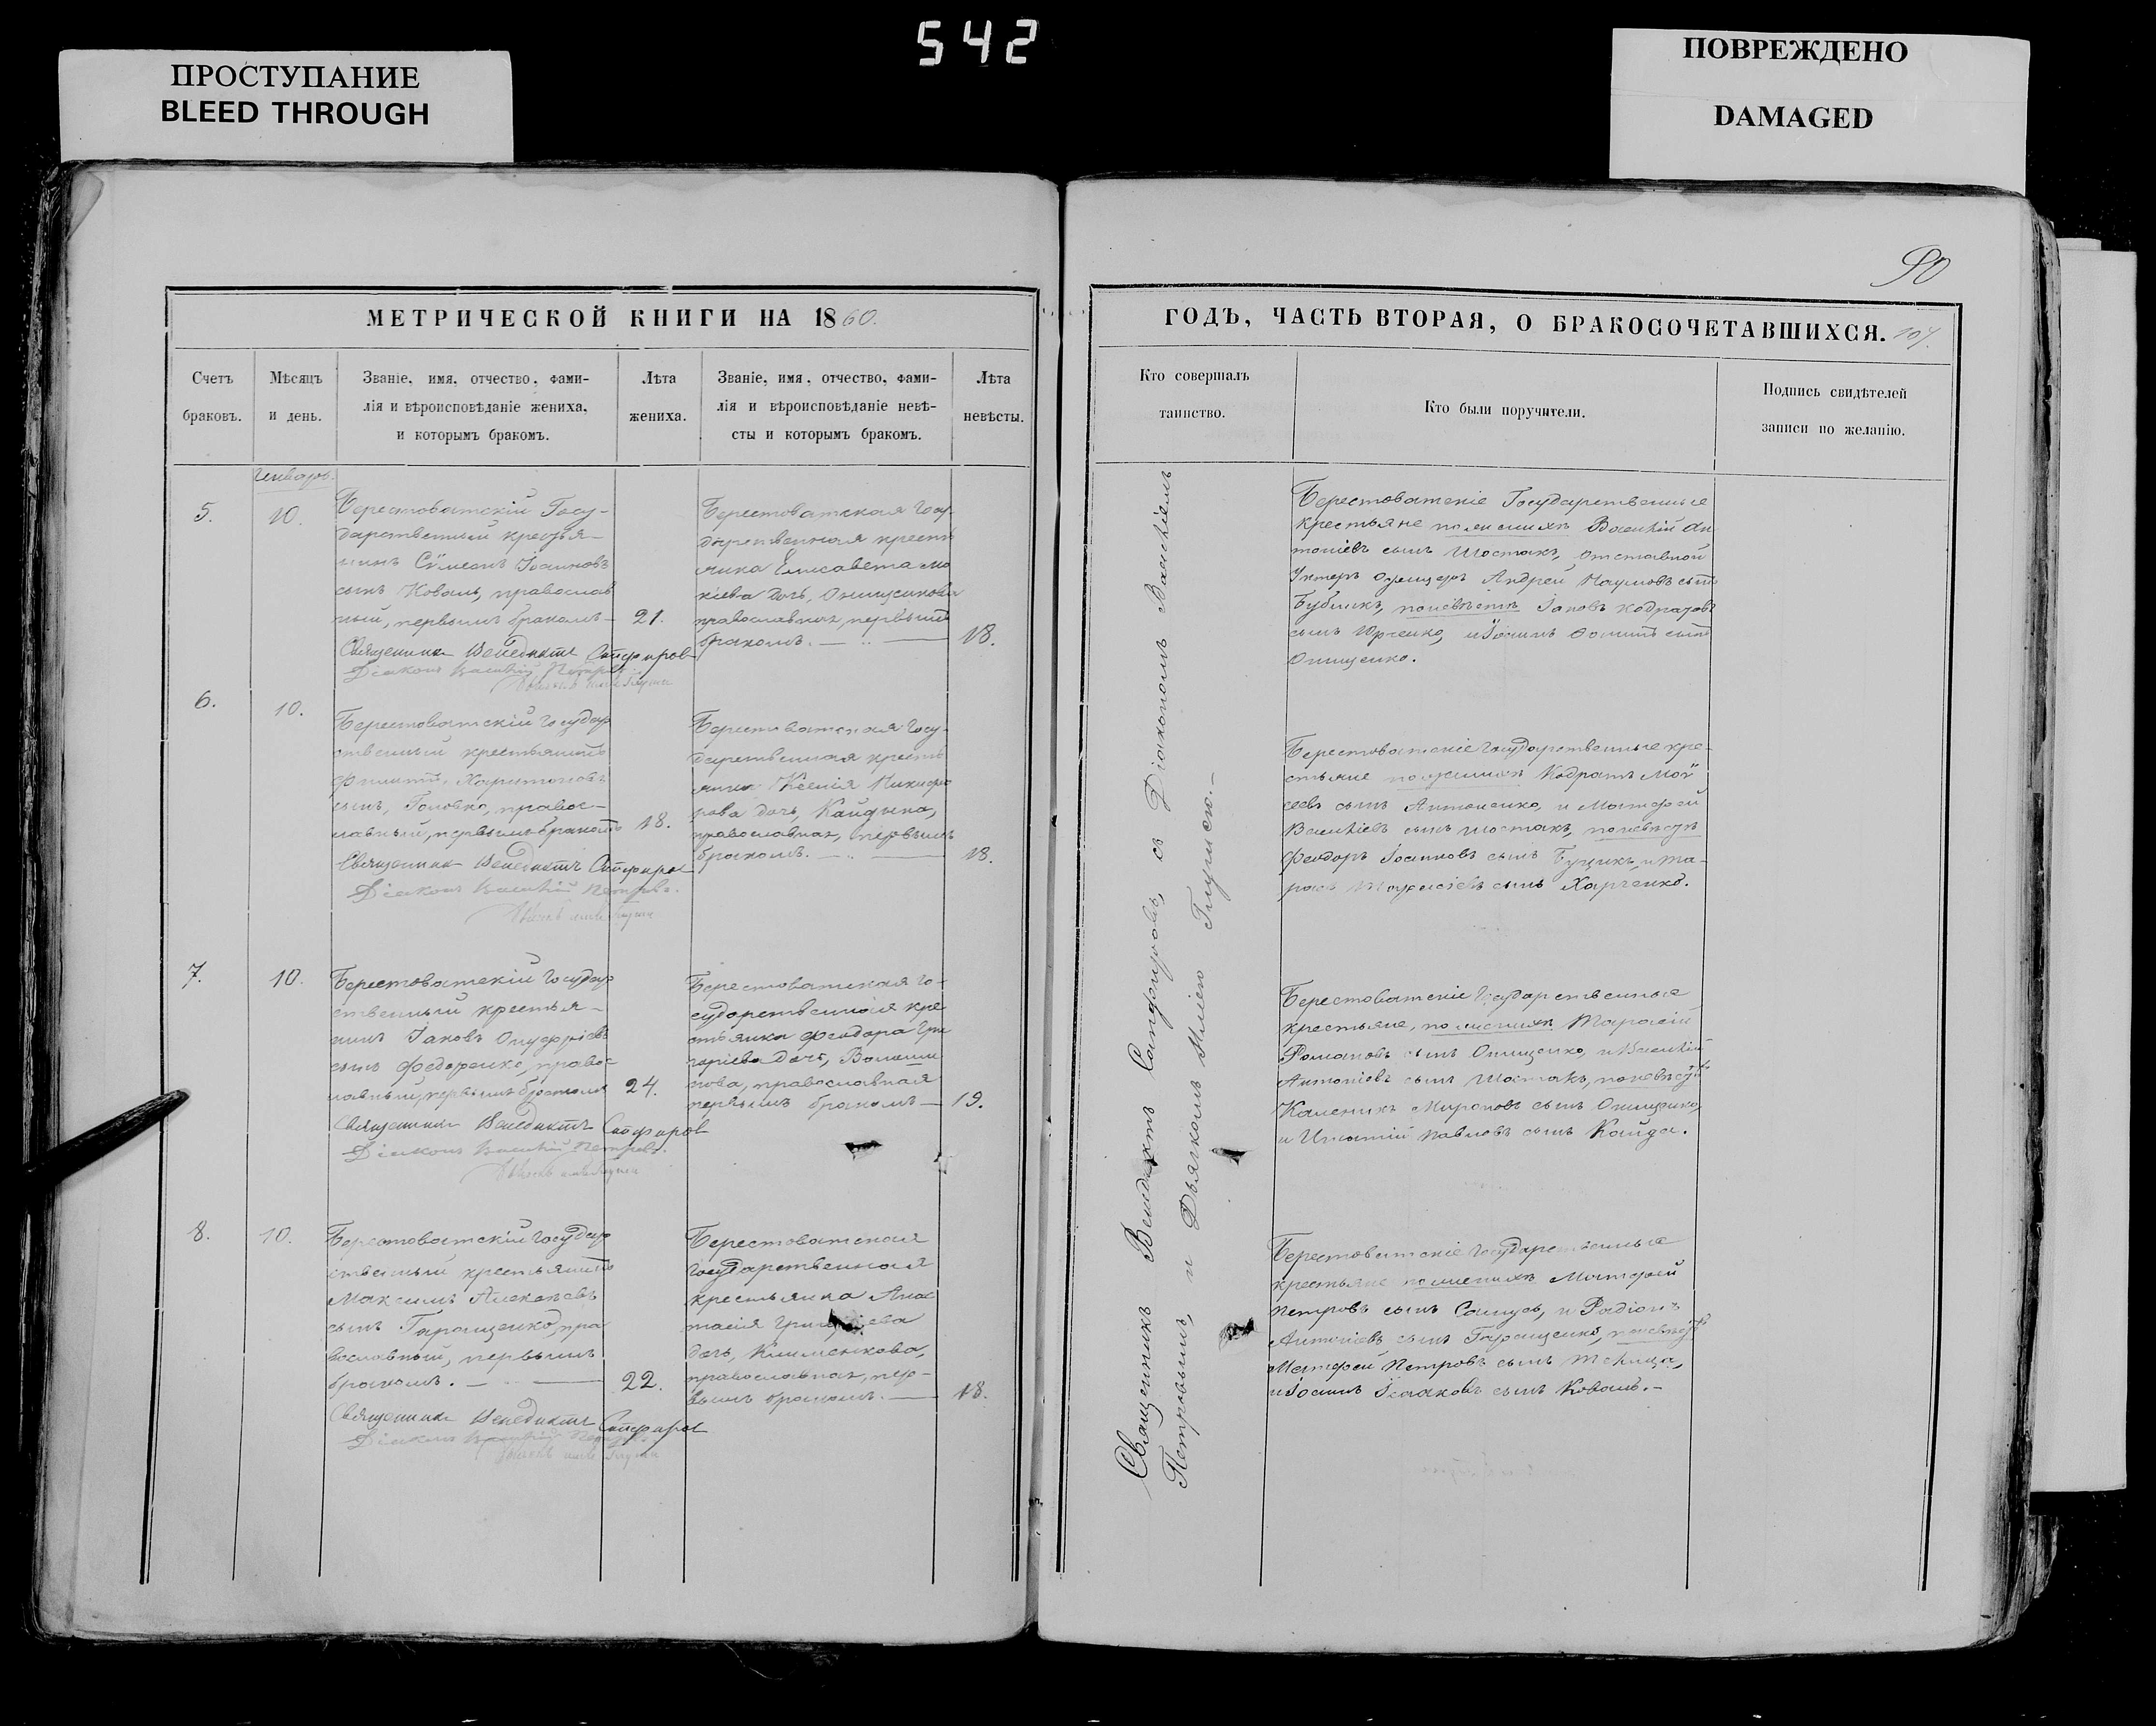 542
ПРОСТУПАНИЕ
BLEED THROUGH
ПОВРЕЖДЕНО
DAMAGED
МЕТРИЧЕСКОЙ КНИГИ НА 1860.
Счетъ браковъ.
Мѣсяцъ и день.
Званіе, имя, отчество, фами-
лія и вѣроисповѣданіе жениха,
и которымъ бракомъ.
Лѣта жениха.
Званіе, имя, отчество, фами-
лія и вѣроисповѣданіе невѣ-
сты и которымъ бракомъ.
Лѣта невѣсты.
5.
10.
Берестоватскій Госу-
дарственный крестья-
нинъ Сѵмеонъ Іоанновъ
сынъ Коваль, православ
ный, первымъ бракомъ
21.
Священникъ Венедиктъ Сапфировъ
Діаконъ Василій Петровъ
Берестоватская Госу-
дарственная крестья
нка Елисавета
дочь, Онищенкова
православная, первымъ
бракомъ.
18.
6.
10.
Берестоватскій Государ
ственный крестьянинъ
Филиппъ Харитоновъ
сынъ, Головко, право-
славный, первымъ бракомъ
18.
Священникъ Венедиктъ Сапфировъ
Діаконъ Василій Петровъ.
Берестоватская Госу-
дарственная крестья
нка Ксенія Никифо
рова дочь, Кайдина,
православная, первымъ
бракомъ.
18.
7.
10.
Берестоватскій Государ
ственный крестья-
нинъ Іаковъ Онуфріевъ
сынъ Федоренко, право-
славный, первымъ бракомъ
24.
Священникъ Венедиктъ Сапфировъ
Діаконъ Василій Петровъ.
Берестоватская Го-
сударственная кре
стьянка Феодора Гри
горіева дочь,
православная
первымъ бракомъ
19.
8.
10.
Берестоватскій Государ
ственный крестьянинъ
Максимъ Алексѣевъ
сынъ Геращенко, пра
вославный, первымъ
бракомъ.
22.
Священникъ Венедиктъ Сапфировъ
Берестоватская
Государственная
крестьянка Анас
тасія
дочь, Клименкова,
православная, пер-
вымъ бракомъ.
18.
90
ГОДЪ, ЧАСТЬ ВТОРАЯ, О БРАКОСОЧЕТАВШИХСЯ.
Кто совершалъ таинство.
Кто были поручители.
Подпись свидѣтелей
записи по желанію.
Священникъ Венедиктъ Сапфировъ, съ Діакономъ Василіемъ
Петровымъ, и Дьячкомъ Иліею
Берестоватскіе Государственные
крестьяне по женихѣ Василій Ан
тоніевъ сынъ Шостакъ, отставной
Унтеръ Офицеръ Андрей Наумовъ сынъ
Бубликъ, по невѣстѣ Іаковъ Кодратовъ
сынъ Юрченко, и Іоаннъ сынъ
Онищенко.
Берестоватскіе Государственные кре-
стьяне по женихѣ Кодратъ Мой
сеевъ сынъ Антоненко, и Матфей
Василіевъ сынъ Шостакъ, по невѣстѣ
Феодоръ Іоанновъ сынъ и Та-
расъ сынъ Харченко.
Берестоватскіе Государственные
крестьяне, по женихѣ Тарасій
Романовъ сынъ Онищенко, и Василій
Антоніевъ сынъ Шостакъ, по невѣстѣ
Каленикъ Мироновъ сынъ Онищенко,
и Игнатій Павловъ сынъ Кайда.
Берестоватскіе Государственные
крестьяне по женихѣ Матфей
Петровъ сынъ и Радіонъ
Антоніевъ сынъ Геращенко, по невѣстѣ
Матфей Петровъ сынъ
и Іоаннъ Исааковъ сынъ Коваль.